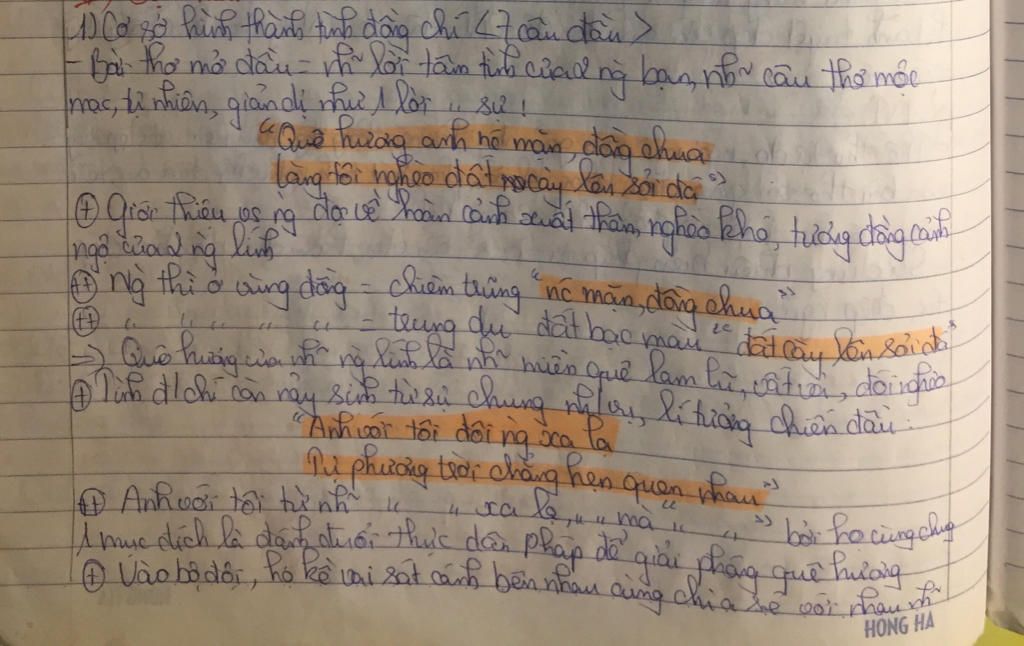 1) Cơ sở hình thành tình đồng chí < 7 câu đầu >
- Bài thơ mở đầu = nh~ lời tâm tình của 2 ng bạn, nh~ câu thơ mộc
mạc, tự nhiên, giản dị như 1 lời " sự!
"Quê hương anh nc mặn, đồng chua
Làng tôi nghèo đất cày lên sỏi đá"
⊕ Giới thiệu vs ng đọc về hoàn cảnh xuất thân, nghèo khó, tương đồng cảnh
ngộ của 2 ng lính
⊕ Ng thì ở vùng đồng = chiêm trũng "nc mặn, đồng chua"
⊕ " " " " " = trung du đất bạc màu "đất cày lên sỏi đá"
=> Quê hương của nh~ ng lính là nh~ miền quê lam lũ, vất vả, đói nghèo
⊕ Tình đ/chí còn nảy sinh từ sự chung nh/vụ, lí tưởng chiến đấu:
"Anh với tôi đôi ng xa lạ
Tự phương trời chẳng hẹn quen nhau"
⊕ Anh với tôi từ nh~ " " xa lạ, " " mà " " " bởi họ cùng chug
1 mục đích là đánh đuổi thực dân Pháp để giải phóng quê hương
⊕ Vào bộ đội, họ kề vai sát cánh bên nhau cùng chia sẻ với nhau nh~
HONG HA